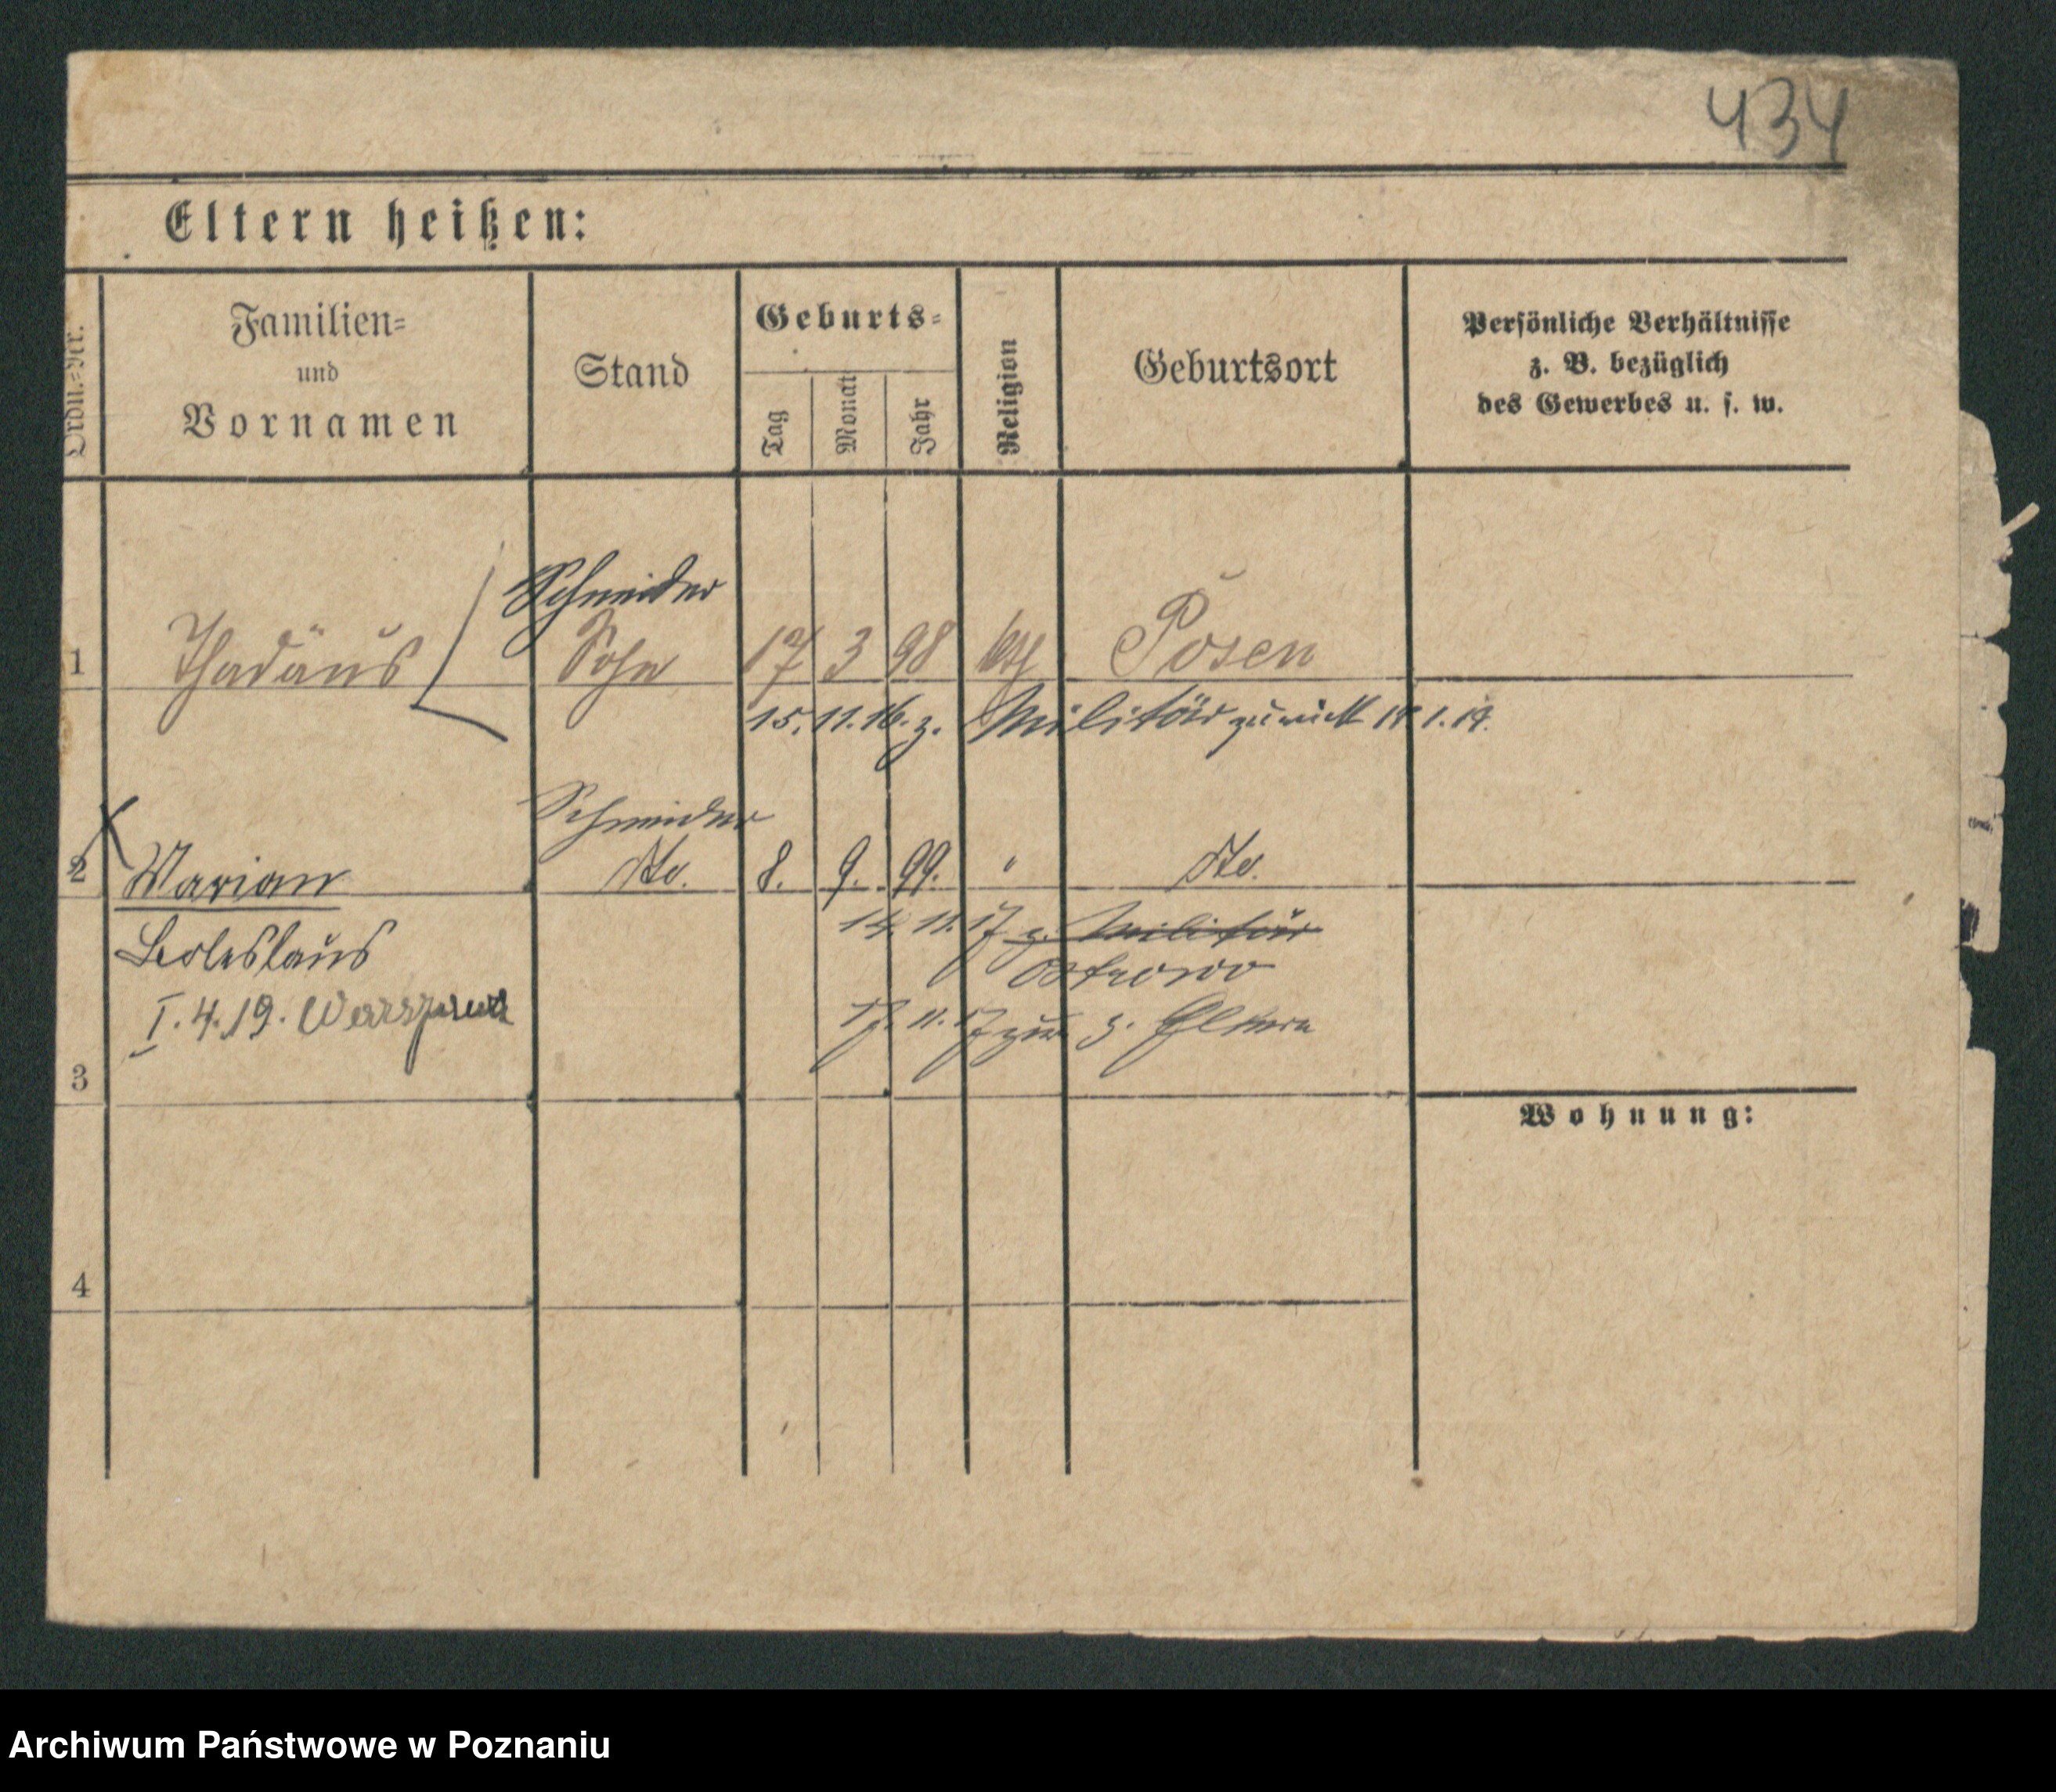 434
Eltern heißen:
Ordn.-Nr.
Familien-
und
Vornamen
Stand
Geburts-
Tag
Monat
Jahr
Religion
Geburtsort
Persönliche Verhältnisse
z. B. bezüglich
des Gewerbes u. s. w.
Schneider
1 Thadäus Sohn 17 3 98 kth Posen
15. 11. 16. z. Militär zurück 1.
Schneider
2 Marian dto. 8. 9. 99. " dto.
14. 11. 17 z. Militär
Boleslaus
Ostrowo
I. 4. 19. Warszawa
17. 11. 17 zur z. Eltern
3
Wohnung:
4
Archiwum Państwowe w Poznaniu